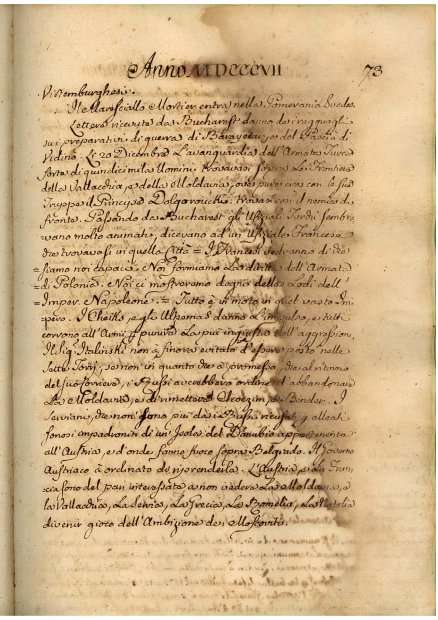 Anno MDCCCVII
73
Virtemburghesi.
Il Maresciallo Mortier entra nella Pomerania Svedese.
Lettere ricevute da Bucharest danno de i ragguagli
sui preparativi di guerra di Barayctar, e del Pascià di
Vidino. Li 20 Dicembre L'avanguardia dell'Armata Turca
forte di quindici mila Uomini trovavasi sopra Le Frontiere
della Vallacchia, e della Moldavia, ove pure era con le sue
Truppe il Principe Dolgoroucki: trovavasi il nemico a
fronte. Passando da Bucharest gli Uffiziali Turchi sembra-
vano molto animati, dicevano ad un Uffiziale Francese
che trovavasi in quella Città = I Francesi vedranno di che
siamo noi capaci. Noi formiamo La diritta dell'Armata
di Polonia, e Noi ci mostreremo degni delle Lodi dell'
Imper. Napoleone. = Tutto è in moto in quel vasto Im-
pero. I Cheiks, e gli Ulemas danno L'impulso, e tutti
corrono all'Armi p. punire La più ingiusta dell'aggressioni.
Il Sig. Italinski non à finora evitato d'essere posto nelle
Sette Torri, se non in quanto che à promesso, che al ritorno
del suo corriere, i Russi avrebbero ordine di abbandonare
La Moldavia, e di rimettere Choczim, e Bender. I
Serviani, che non sono più da i Russi ricusati, gli alleati
sonosi impadroniti di un'Isola del Danubio appartenente
all'Austria, e d'onde fanno fuoco sopra Belgrado. Il Governo
Austriaco à ordinato di riprenderla. L'Austria, e La Fran-
cia sono del pari interessate a non vedere La Moldavia, e
la Vallacchia, La Servia, La Grecia, La Romelia, La Natolia
divenir gioco dell'Ambizione dei Moscoviti.